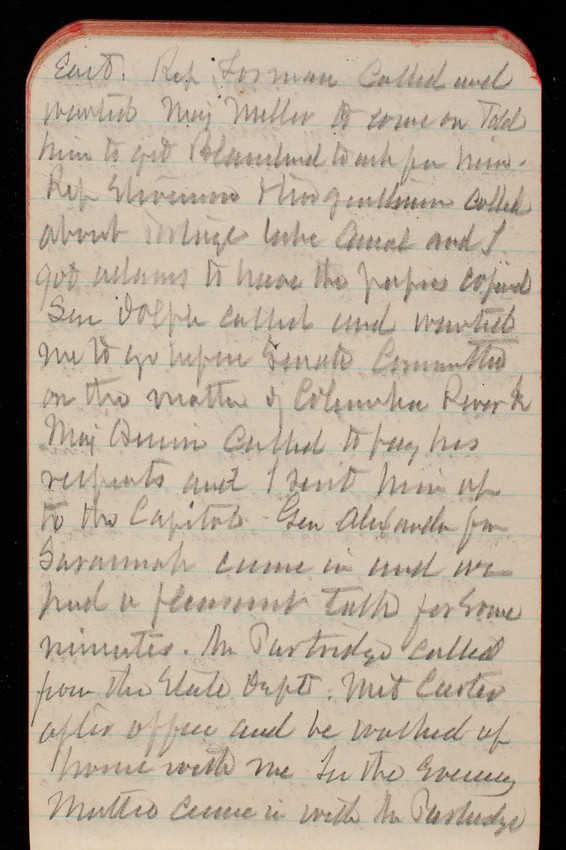 East. Rep Forman called and
wanted Maj Miller to come on Told
him to get Blanchard to ask for him.
Rep Stevenson & called
about Portage Lake Canal and I
got Adams to have the papers copied
Sen Dolph called and wanted
me to go before Senate Committee
on the matter of Columbia River R
Maj called to pay his
respects and I sent him up
to the Capitol. Gen Alexander from
Savannah came in and we
had a pleasant talk for some
minutes. Mr Partridge called
from the State Dept. Met Carter
after office and he walked up
home with me In the Evening
came in with Mr Partridge